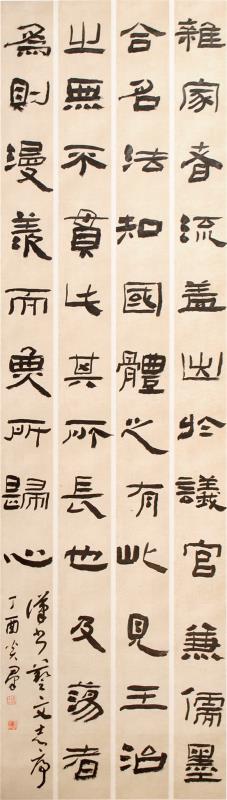 雜家者流盖出於議官兼儒墨
合名法知國體之有此見王治
之無不貫此其所長也及蕩者
為則漫羨而無所歸心
漢書藝文志序
丁酉